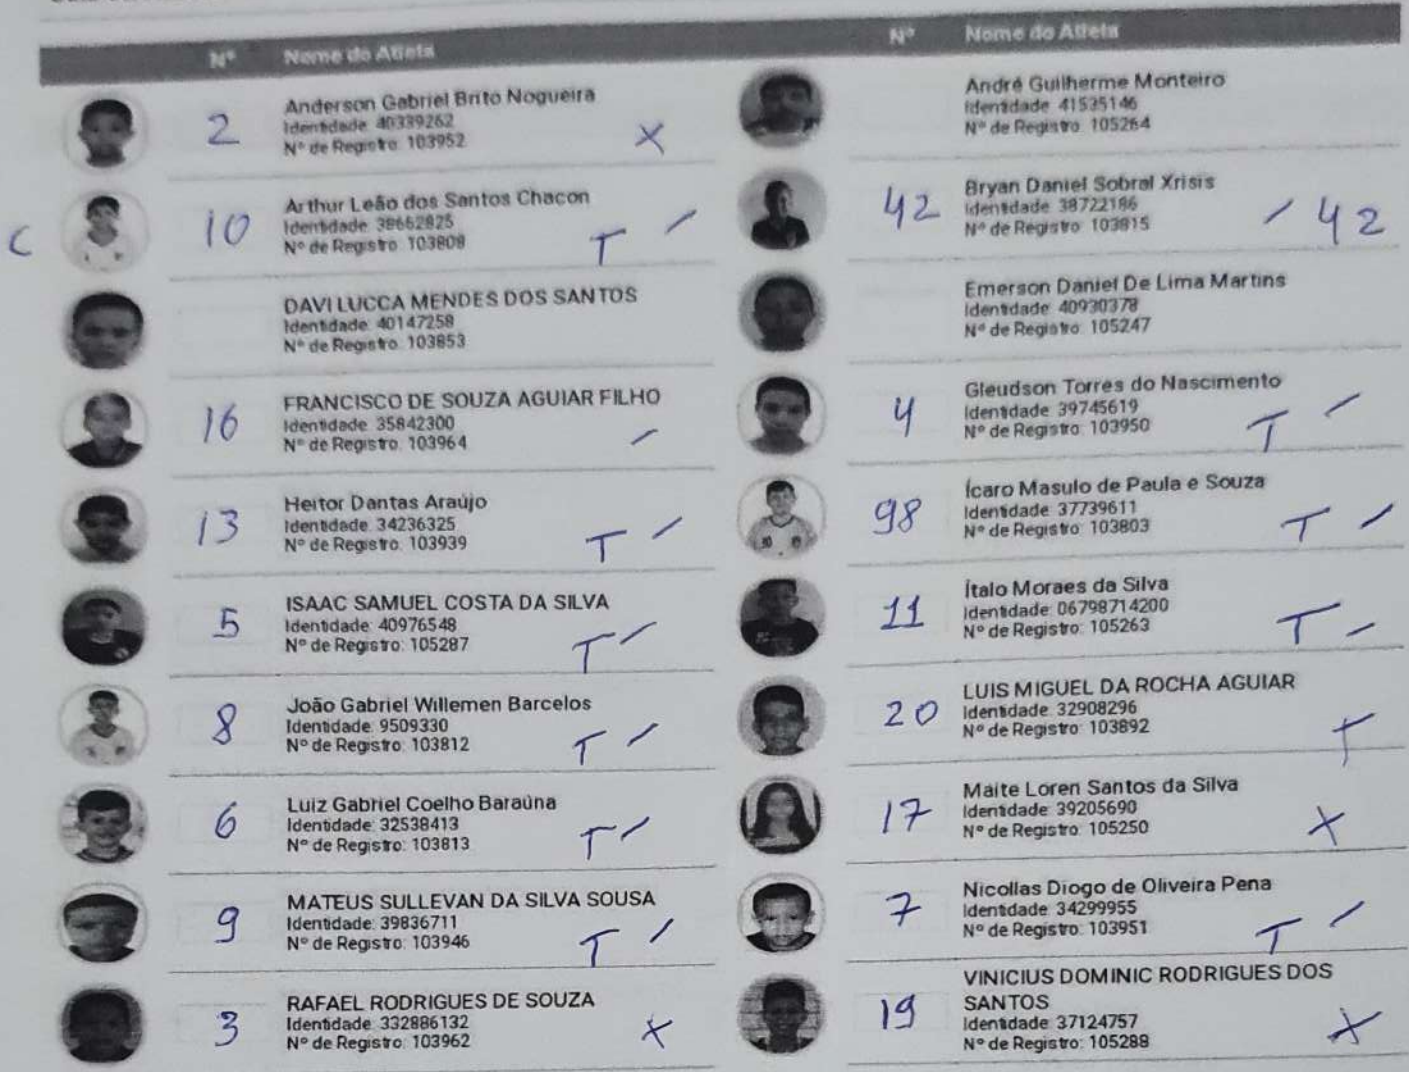 Nº Nome do Atleta
2 Anderson Gabriel Brito Nogueira
Identidade: 40339262
Nº de Registro: 103952 X
C 10 Arthur Leão dos Santos Chacon
Identidade: 38662825
Nº de Registro: 103808 T /
DAVI LUCCA MENDES DOS SANTOS
Identidade: 40147258
Nº de Registro: 103853
16 FRANCISCO DE SOUZA AGUIAR FILHO
Identidade: 35842300
Nº de Registro: 103964 /
13 Heitor Dantas Araújo
Identidade: 34236325
Nº de Registro: 103939 T /
5 ISAAC SAMUEL COSTA DA SILVA
Identidade: 40976548
Nº de Registro: 105287 T /
8 João Gabriel Willemen Barcelos
Identidade: 9509330
Nº de Registro: 103812 T /
6 Luiz Gabriel Coelho Baraúna
Identidade: 32538413
Nº de Registro: 103813 T /
9 MATEUS SULLEVAN DA SILVA SOUSA
Identidade: 39836711
Nº de Registro: 103946 T /
3 RAFAEL RODRIGUES DE SOUZA
Identidade: 332886132
Nº de Registro: 103962 X
Nº Nome do Atleta
André Guilherme Monteiro
Identidade: 41535146
Nº de Registro: 105264
42 Bryan Daniel Sobral Xrisis
Identidade: 38722186
Nº de Registro: 103815 / 42
Emerson Daniel De Lima Martins
Identidade: 40930378
Nº de Registro: 105247
4 Gleudson Torres do Nascimento
Identidade: 39745619
Nº de Registro: 103950 T /
98 Ícaro Masulo de Paula e Souza
Identidade: 37739611
Nº de Registro: 103803 T /
11 Ítalo Moraes da Silva
Identidade: 06798714200
Nº de Registro: 105263 T /
20 LUIS MIGUEL DA ROCHA AGUIAR
Identidade: 32908296
Nº de Registro: 103892 X
17 Maite Loren Santos da Silva
Identidade: 39205690
Nº de Registro: 105250 X
7 Nicollas Diogo de Oliveira Pena
Identidade: 34299955
Nº de Registro: 103951 T /
19 VINICIUS DOMINIC RODRIGUES DOS
SANTOS
Identidade: 37124757
Nº de Registro: 105288 X